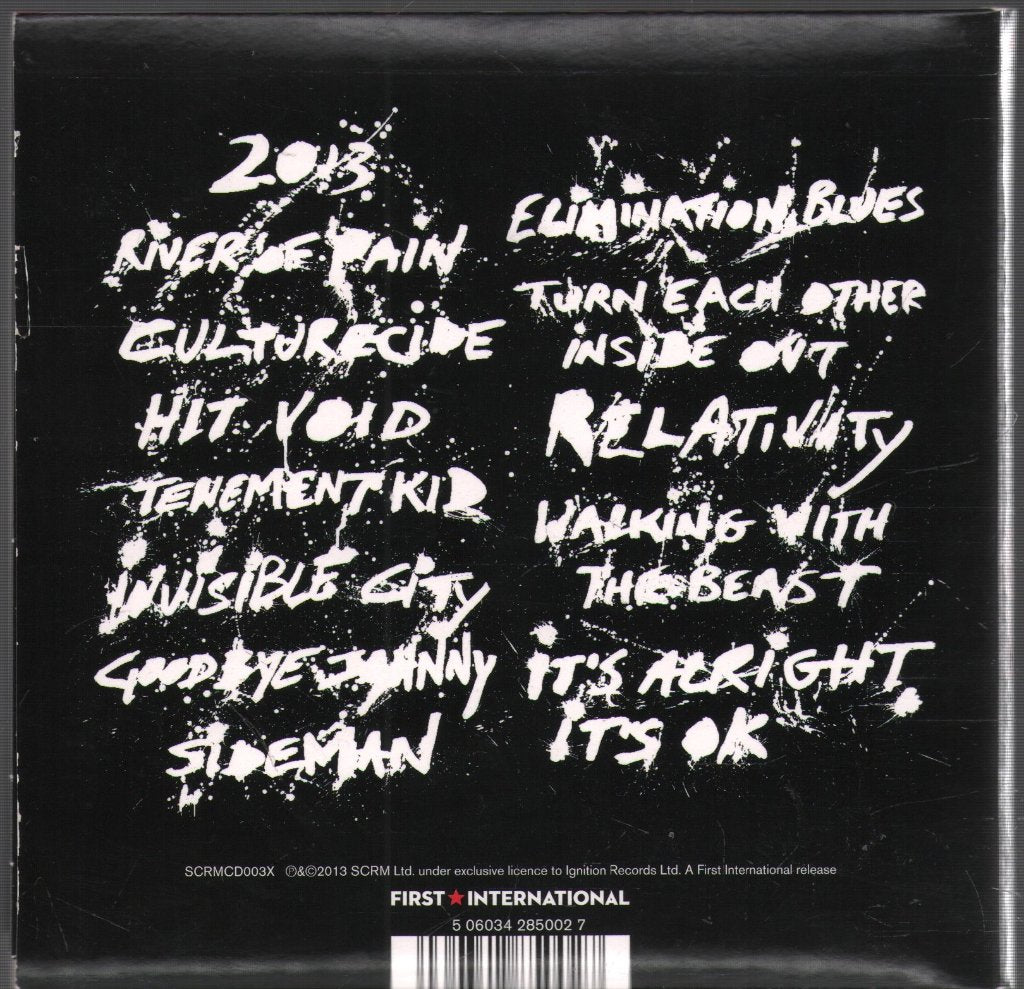 2013
RIVER OF PAIN
CULTURECIDE
HIT VOID
TENEMENT KID
INVISIBLE CITY
GOODBYE JOHNNY
SIDEMAN
ELIMINATION BLUES
TURN EACH OTHER
INSIDE OUT
RELATIVITY
WALKING WITH
THE BEAST
IT'S ALRIGHT,
IT'S OK
SCRMCD003X ℗&©2013 SCRM Ltd. under exclusive licence to Ignition Records Ltd. A First International release
FIRST★INTERNATIONAL
5 06034 285002 7